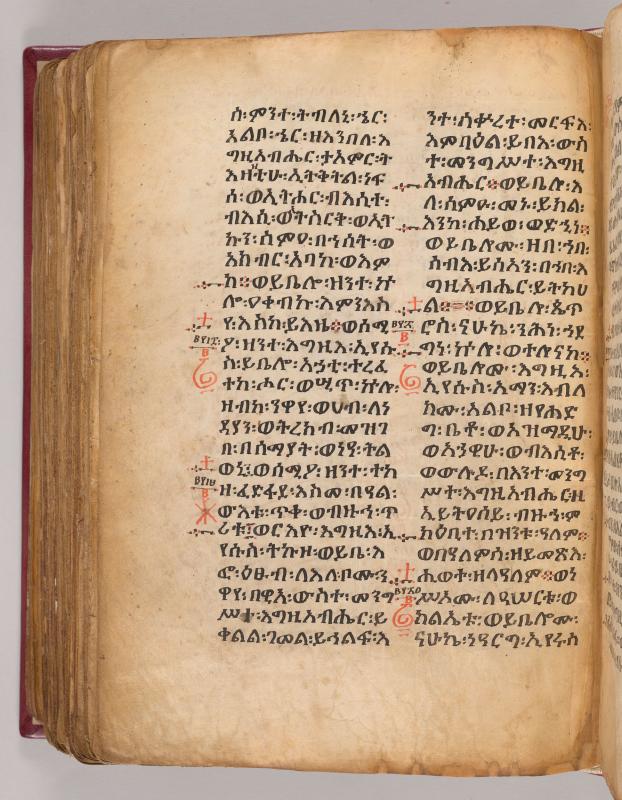 ሰ፡ምንተ፡ትብለኒ፡ኄር፡
አልቦ፡ኄር፡ዘእንበለ፡እ
ግዚአብሔር፡ታአምር፡ት
እዛዚሁ፡ኢትቅትል፡ነፍ
ሰ፡ወኢትሑር፡ብእሲተ፡
ብእሲ፡ወኢትስርቅ፡ወኢት
ኩን፡ሰምዐ፡በሐሰት፡ወ
አክብር፡አባከ፡ወእም
ከ፡፡ወይቤሎ፡ዝንተ፡ኵ
ሎ፡ዐቀብኩ፡እምንእስ
የ፡እስከ፡ይእዜ፡፡ወሰሚ
ዖ፡ዘንተ፡እግዚእ፡ኢየሱ
ስ፡ይቤሎ፡አኃቲ፡ተረፈ
ተከ፡ሖር፡ወሢጥ፡ኵሎ፡
ዘብከ፡ንዋየ፡ወሀብ፡ለነ
ዳያን፡ወትረክብ፡መዝገ
በ፡በሰማያት፡ወነዓ፡ትል
ወኒ፡፡ወሰሚዖ፡ዘንተ፡ተከ
ዘ፡ፈድፋደ፡እስመ፡በዓል፡
ውእቱ፡ጥቀ፡ወብዙኅ፡ጥ
ሪቱ፡፡ወርእዮ፡እግዚእ፡ኢ
የሱስ፡ትኩዞ፡ወይቤ፡እ
ፎ፡ዕፁብ፡ለእለ፡ቦሙ፡ን
ዋየ፡በዊእ፡ውስተ፡መንግ
ሥተ፡እግዚአብሔር፡ይ
ቀልል፡ገመል፡ይኅልፍ፡እ
ንተ፡ስቍረተ፡መርፍእ፡
እምባዕል፡ይበእ፡ውስ
ተ፡መንግሥተ፡እግዚ
አብሔር፡፡ወይቤሉ፡እ
ለ፡ሰምዑ፡መኑ፡ይክል፡
እንከ፡ሐይወ፡ወድኂነ፡፡
ወይቤሎሙ፡ዘበ፡ኀበ፡
ሰብእ፡ይሰአን፡በኀበ፡እ
ግዚአብሔር፡ይትከሀ
ል፡፡ወይቤሎ፡ጴጥ
ሮስ፡ናሁኬ፡ንሕነ፡ኀደ
ግነ፡ኵሎ፡ወተሎናከ፡፡
ወይቤሎሙ፡እግዚእ፡
ኢየሱስ፡አማን፡እብለ
ክሙ፡አልቦ፡ዘየሐድ
ግ፡ቤቶ፡ወአዝማዲሁ፡
ወአኀዊሁ፡ወብእሲቶ፡
ወውሉዶ፡በእንተ፡መንግ
ሥተ፡እግዚአብሔር፡ዘ
ኢይትዐሰይ፡ብዙኀ፡ም
ክዕቢተ፡በዝንቱ፡ዓለም፡
ወበዓለምሰ፡ዘይመጽእ፡
ሕይወተ፡ዘለዓለም፡፡ወነ
ሥኦሙ፡ለዐሠርቱ፡ወ
ክልኤቱ፡ወይቤሎሙ፡
ናሁኬ፡ነዓርግ፡ኢየሩስ